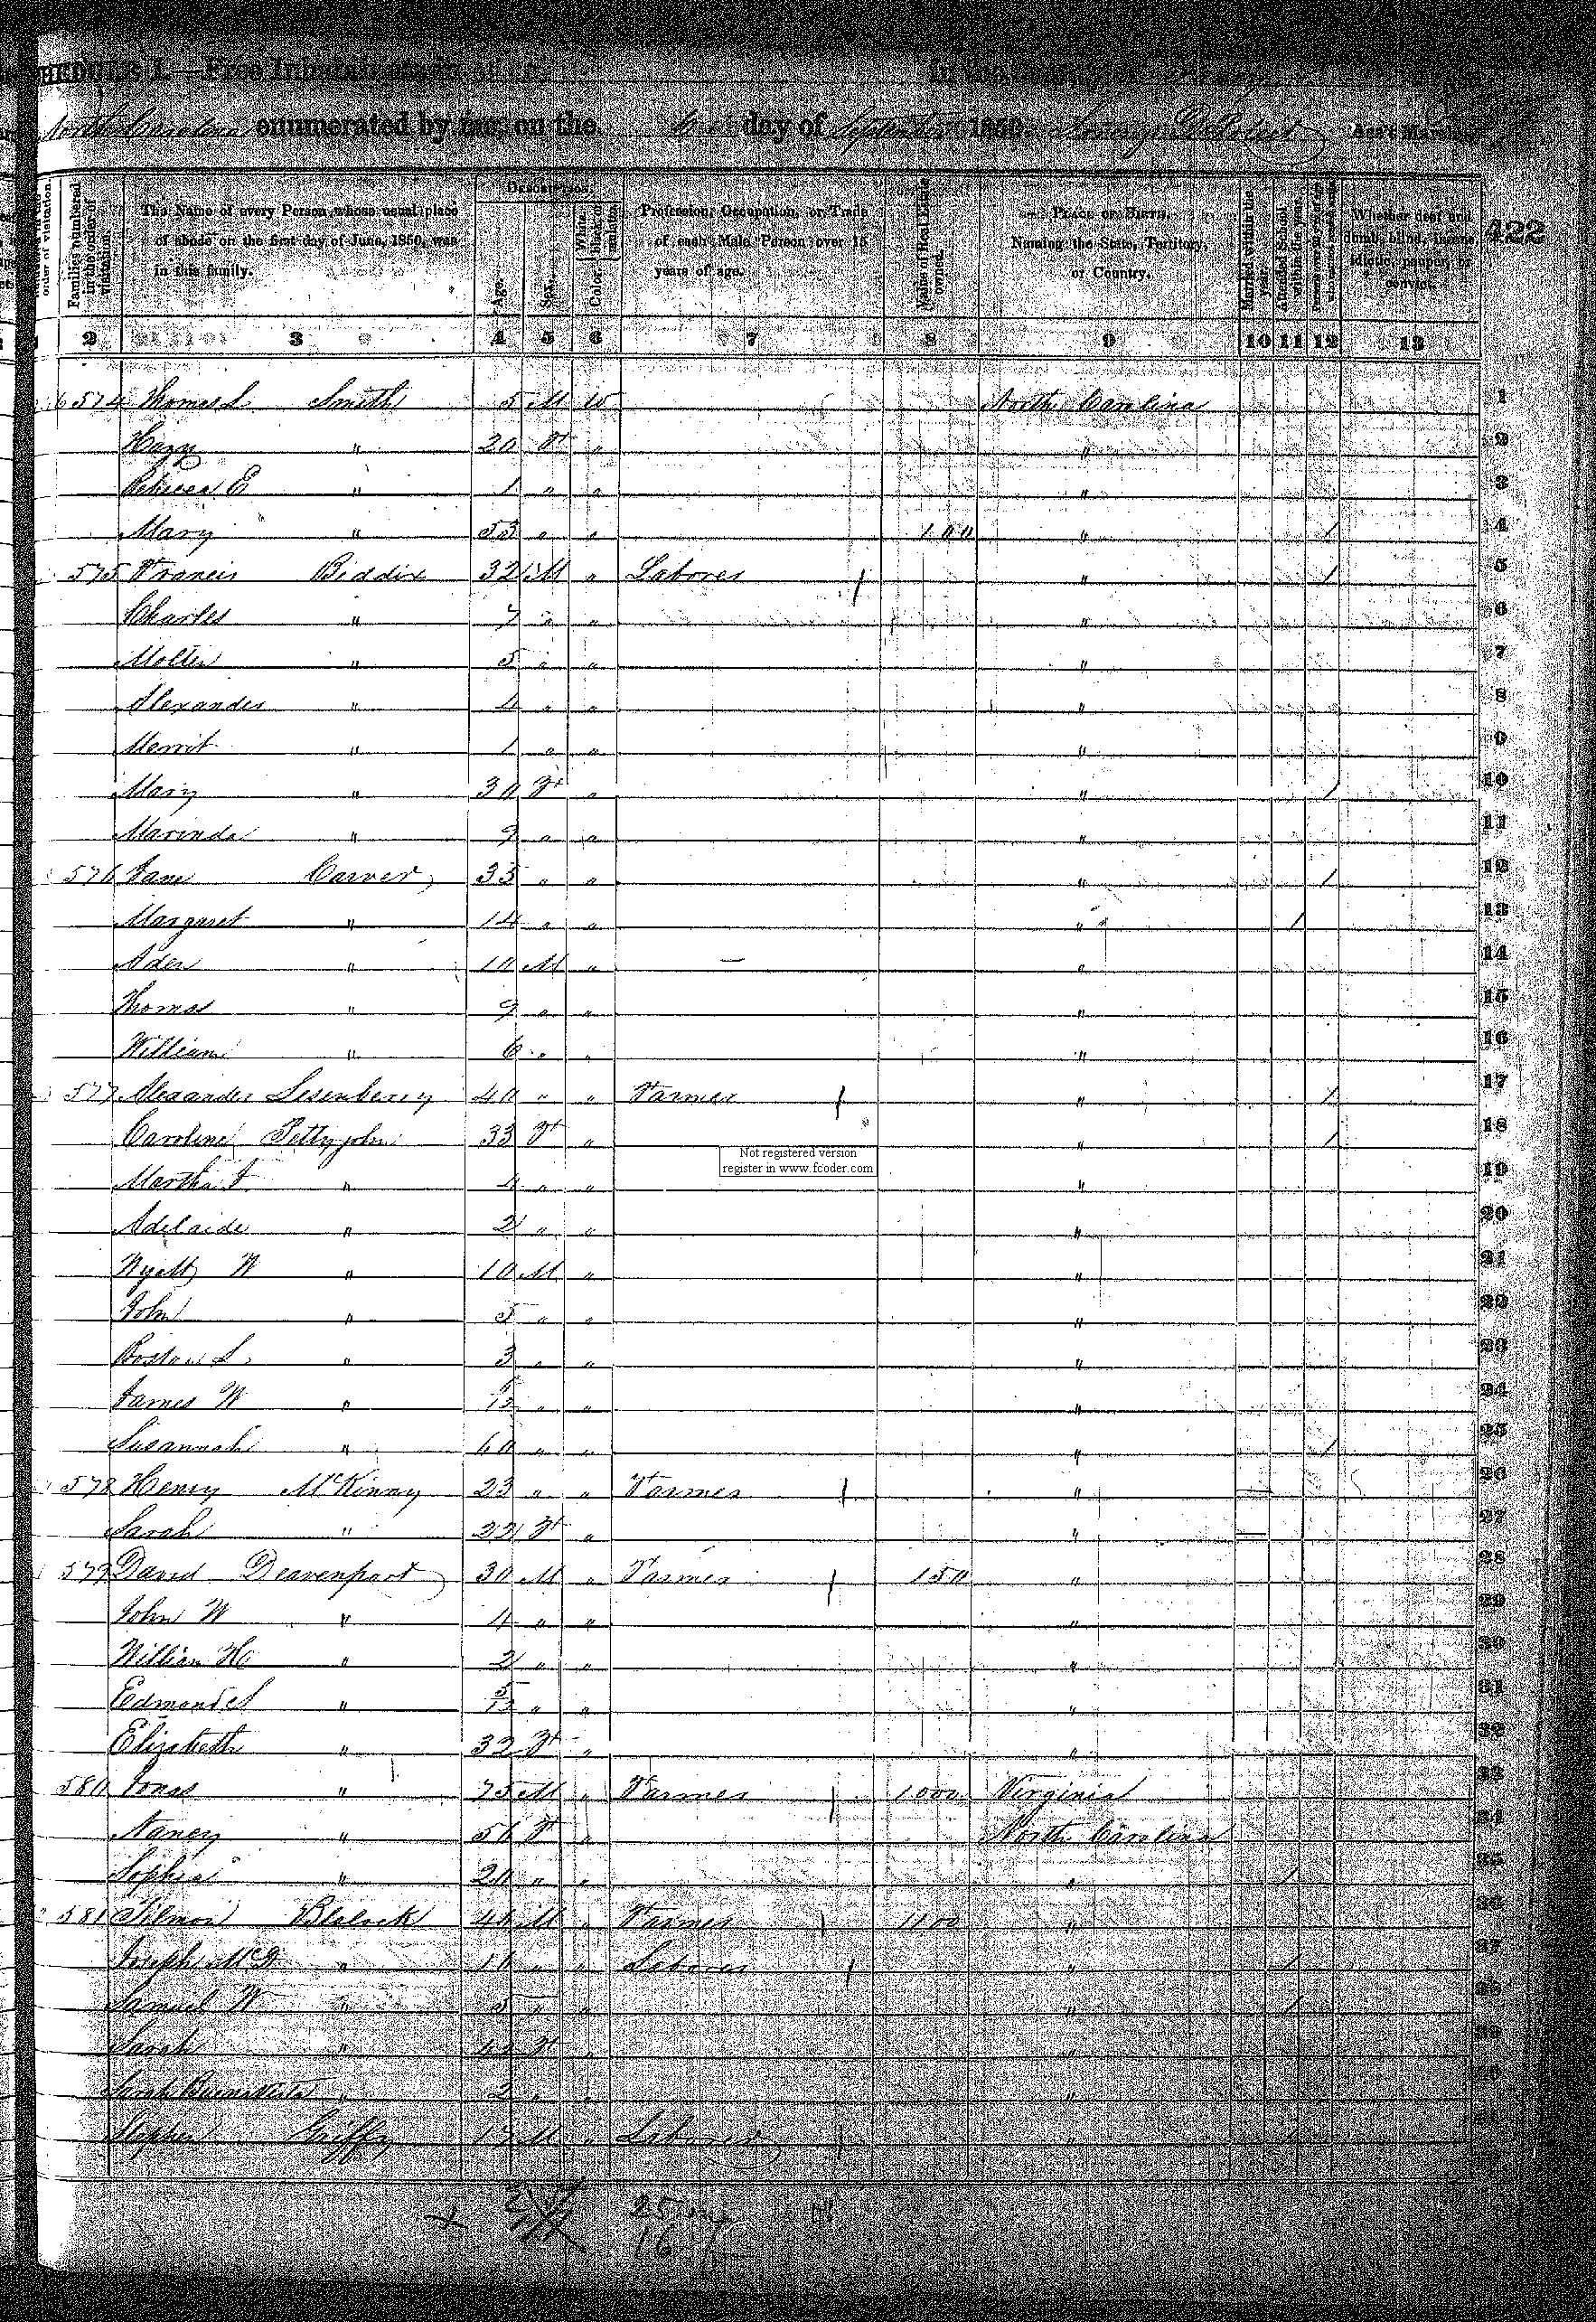 HEDULE I.—Free Inhabitants in
in the
North Carolina enumerated by me, on the 6 day of September 1850. Ass't Marshal
order of visitation.
Families numbered in the order of visitation.
The Name of every Person whose usual place of abode on the first day of June, 1850, was in this family.
Description.
Age.
Sex.
Color, White, black, or mulatto.
Profession, Occupation, or Trade of each Male Person over 15 years of age.
Value of Real Estate owned.
Place of Birth, Naming the State, Territory, or Country.
Married within the year.
Attended School within the year.
Whether deaf and dumb, blind, insane, idiotic, pauper, or convict.
422
1 2 3 4 5 6 7 8 9 10 11 12 13
574 Thomas L Smith 5 M W North Carolina 1
20 F " " 2
Rebecca E " 1 " " " 3
Mary " 53 " " 100 " / 4
575 Francis Biddix 32 M " Laborer " / 5
Charles " 7 " " " 6
" 5 " " " 7
Alexander " 4 " " " 8
Merrit " 1 " " " 9
Mary " 30 F " " / 10
Marinda " 9 " " " 11
576 Jane Carver 35 " " " / 12
Margaret " 14 " " " / 13
Aden " 10 M " " 14
Thomas " 9 " " " 15
William " 6 " " " 16
577 Alexander Lesenberry 40 " " Farmer " / 17
Caroline Pettyjohn 33 F " " / 18
Not registered version
register in www.fcoder.com
Martha J " 4 " " " 19
Adelaide " 2 " " " 20
Wyatt W " 10 M " " 21
John " 5 " " " 22
Boston L. " 3 " " " 23
James W " /12 " " " 24
Susannah " 60 " " " / 25
578 Henry McKinny 23 " " Farmer " 26
Sarah " 22 F " " 27
579 David Deavenport 30 M " Farmer 150 " 28
John W " 4 " " " 29
William H " 2 " " " 30
Edmond S " 5/12 " " " 31
Elizabeth " 32 F " " 32
580 Jonas " 75 M " Farmer 1000 Virginia 33
Nancy " 56 F " North Carolina 34
Sophia " 20 " " " / 35
581 Tilmon Blalock 46 M " Farmer 1100 " 36
Joseph McD " 16 " " Laborer " / 37
Samuel W " 5 " " " / 38
Sarah " F " " 39
Sarah " 2 " " "
Stephen Griffy 17 M " Laborer "
25
16